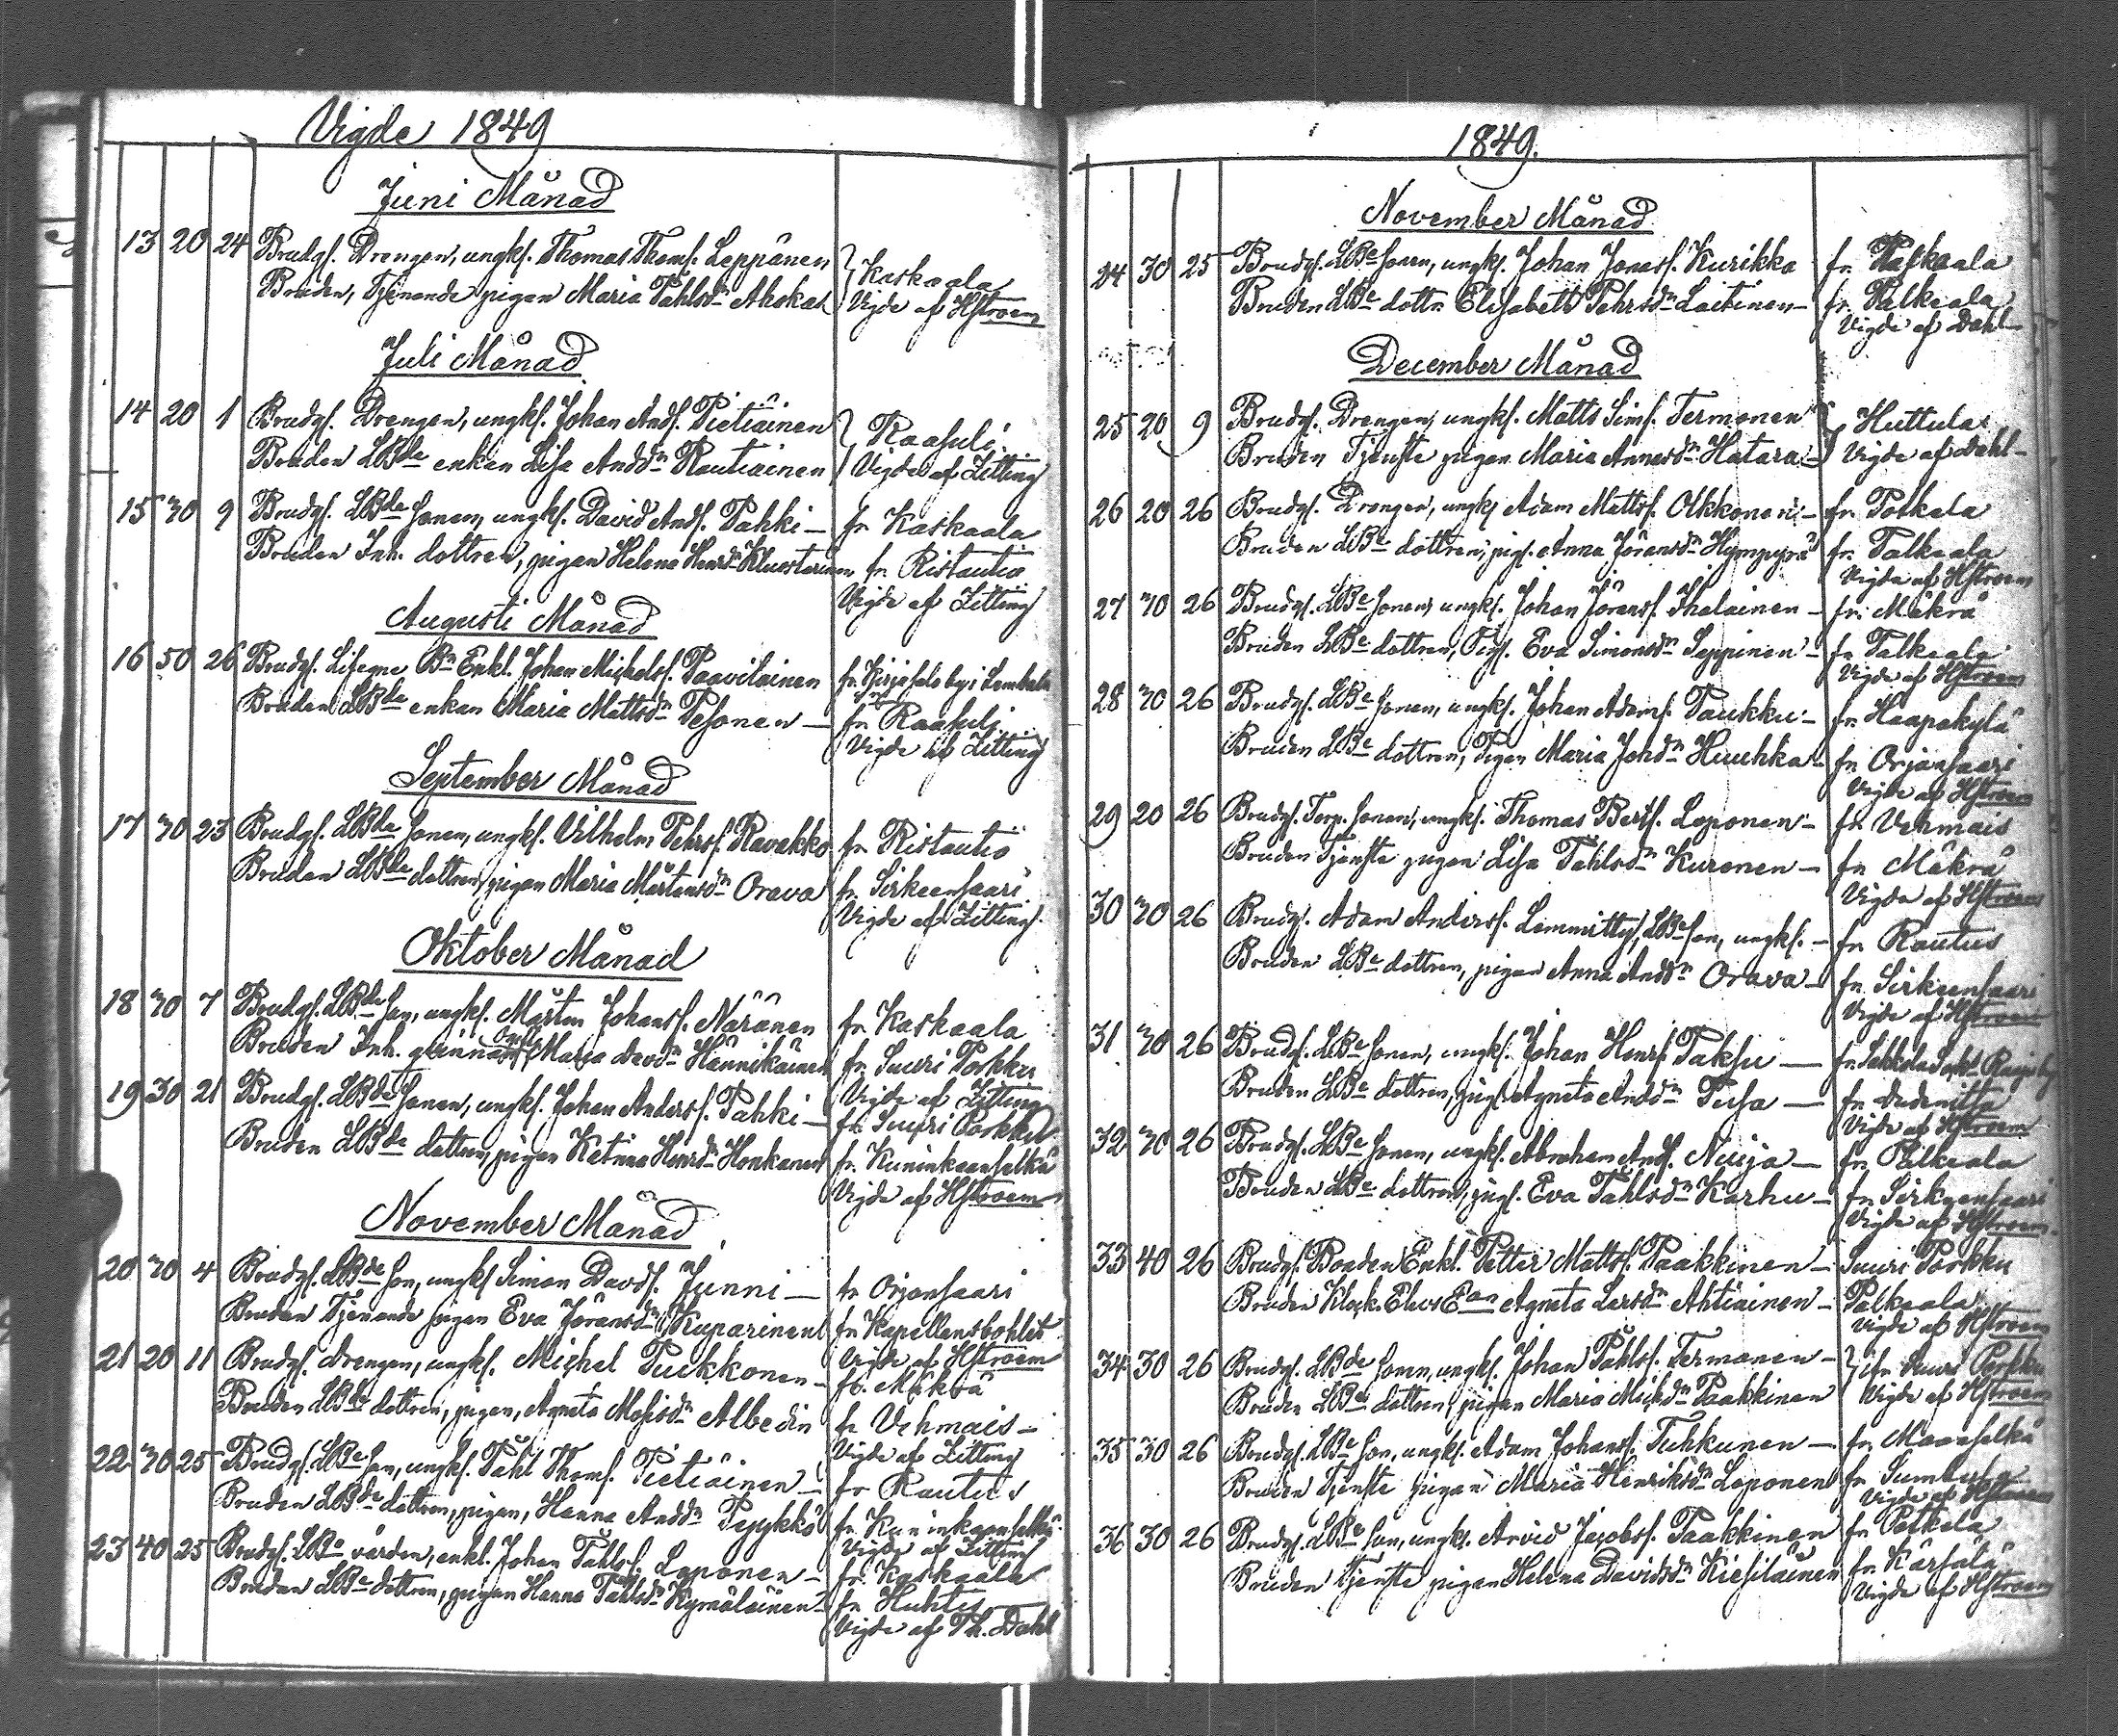 Vigde 1849
Juni Månad
13 20 24 Brudg. Drengen, ungk. Thomas Thoms. Leppänen
Bruden, Tjenande pigan Maria Påhlsdn Ahokas
Kaskaala
Vigde af Hstroem
Juli Månad
14 20 1 Brudg. Drengen, ungk. Johan Ands. Pietiäinen
Bruden LBde enkan Lisa Anddn Rautiainen
Raasuli
Vigde af Zitting
15 30 9 Brudg. LBde sonen, ungk. David Ands. Pahki — fr. Kaskaala
Bruden Inh. dottren, pigan Helena Henrdn fr. Ristautio
Vigde af Zitting
Augusti Månad
16 50 26 Brudg. Lifegne Bn Enkl. Johan Michelss. Paavilainen fr. by i Lembala
Bruden LBde enkan Maria Mattsdn Pesonen — fr. Raasuli
Vigde af Zitting
September Månad
17 30 23 Brudg. LBde sonen, ungk. Vilhelm Pehrss. Ravakko fr. Ristautio
Bruden LBde dottren, pigan Maria Mårtensdn Orava fr. Sirkeensaari
Vigde af Zitting.
Oktober Månad
18 30 7 Brudg. LBde son, ungk. Mårten Johanss. Näränen fr. Kaskaala
Bruden Inh. Maria Davdn Hännikäinen fr. Suuri Porkku
Vigde af Zitting
19 30 21 Brudg. LBde sonen, ungk. Johan Anderss. Pahki — fr. Suuri Porkku
Bruden LBde dottren, pigan Katrina Henrdn Honkanen fr. Kuninkaanselkä
Vigde af Hstroem
November Månad
20 30 4 Brudg. LBde son, ungk. Simon Davds. Junni — fr. Orjansaari
Bruden Tjenande pigan Eva Jöransdn Kuparinen fr. Kapellansbohlet
Vigde af Hstroem
21 20 11 Brudg. drengen, ungk. Michel Puckkonen — fr. Mäkrä
Bruden LBde dottren, pigan, Agneta Mosisdn Albedin fr. Vehmais —
Vigde af Zitting
22 30 25 Brudg. LBe son, ungk. Påhl Thoms. Pietiäinen — fr. Rautus
Bruden LBde dottren, pigan, Hanna Anddn Pyykkö fr. Kuninkaanselkä
Vigde af Zitting
23 40 25 Brudg. LBe värden, enkl. Johan Påhlss. Loponen — fr. Kaskaala
Bruden LBe dottren, pigan Hanna Påhlsdn Kymäläinen — fr. Huhtis
Vigde af Th. Dahl
1849.
November Månad
24 30 25 Brudg. LBe sonen, ungk. Johan Jonass. Kurikka fr. Palkeala
Bruden LBe dottr. Elisabeth Pehrsdn Laitinen — fr. Palkeala
Vigde af Dahl —
December Månad
25 20 9 Brudg. Drengen, ungk. Matts Sims. Termonen
Bruden Tjenste pigan Maria Hatara —
Huttula
Vigde af Dahl —
26 20 26 Brudg. Drengen, ungk. Adam Mattss. Olkkonen — fr. Potkela
Bruden LBe dottren, pig. Anna Jöransdn Hympyrä fr. Palkeala
Vigde af Hstroem
27 30 26 Brudg. LBe sonen, ungk. Johan Jöranss. Ihalainen — fr. Mäkrä
Bruden LBe dottren, Pig. Eva Simonsdn Seppinen — fr. Palkeala
Vigde af Hstroem
28 30 26 Brudg. LBe sonen, ungk. Johan Adams. Paukku — fr. Haapakylä
Bruden LBe dottren, Pigan Maria Johdn Huuhka — fr. Orjansaari
Vigde af Hstroem
29 20 26 Brudg. Torp. sonen, ungk. Thomas Berts. Loponen — fr. Vehmais
Bruden Tjenste pigan Lisa Påhlsdn Kuronen — fr. Mäkrä
Vigde af Hstroem
30 30 26 Brudg. Adam Anderss. Lemmitty, LBe son, ungk. — fr. Rautus
Bruden LBe dottren, pigan Anna Andsdn Orava — fr. Sirkeensaari
Vigde af Hstroem
31 30 26 Brudg. LBe sonen, ungk. Johan Henrs. Paksu — fr. Sakkola
Bruden LBe dottren, pig. Agneta Anddn Pusa —
Vigde af Hstroem
32 30 26 Brudg. LBe sonen, ungk. Abraham Ands. Nuija — fr. Palkeala
Bruden LBe dottren, pig. Eva Påhlsdn Karhu — fr. Sirkeensaari
Vigde af Hstroem.
33 40 26 Brudg. Bonden Enkl. Petter Mattss. Paakkinen — Suuri Porkku
Bruden Klock. Elevs Ean Agneta Larsdn Ahtiainen — Palkeala
Vigde af Hstroem
34 30 26 Brudg. LBde sonen, ungk. Johan Påhlss. Termonen —
Bruden LBe dottren, pigan Maria Michdn Paakkinen
fr. Suuri Porkku
Vigde af Hstroem
35 30 26 Brudg. LBe son, ungk. Adam Johanss. Tuhkunen — fr. Maanselkä
Bruden Tjenste pigan Maria Henriksdn Loponen fr. Sumbula
Vigde af Hstroem
36 30 26 Brudg. LBe son, ungk. Arvid Jacobss. Paakkinen fr. Potkela
Bruden Tjenste pigan Helena Davidsdn Kiesiläinen fr. Kärsälä
Vigde af Hstroem